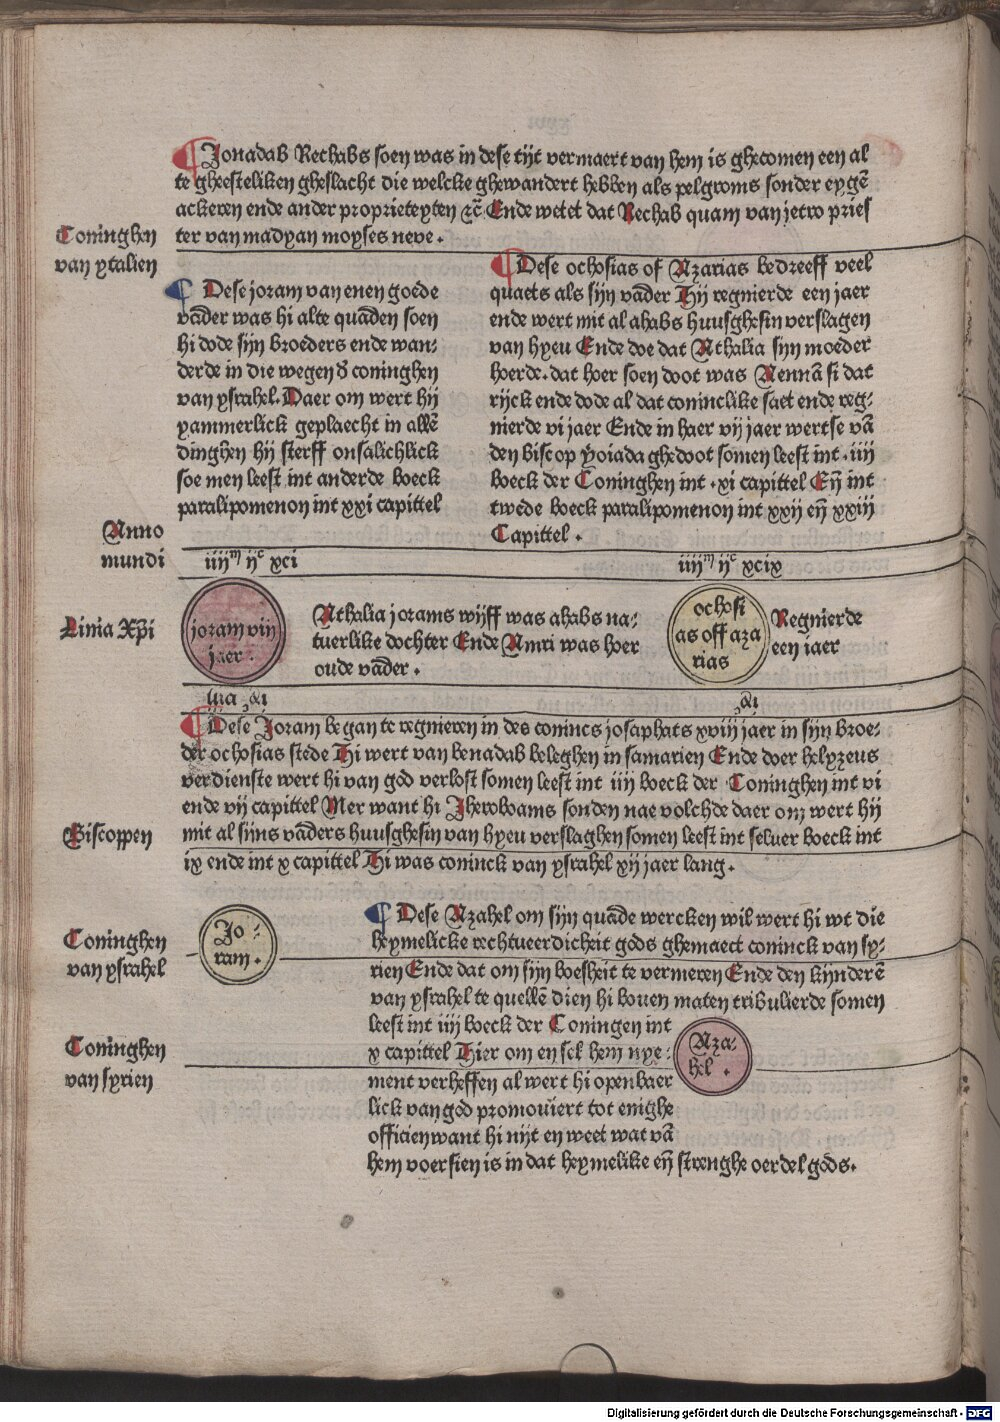 ¶ Jonadab Rechabs soen was in dese tijt vermaert van hem is ghecomen een al
te gheesteliken gheslacht die welcke ghewandert hebben als pelgroms sonder eygē
ackeren ende ander proprieteyten ⁊c̄ Ende wetet dat Rechab quam van jetro pries
ter van madyan moyses neve.
Coninghen
van ytalien
¶ Dese joram van enen goede
vād̄er was hi alte quāden soen
hi dode sijn broeders ende wan⸗
derde in die wegen d̄ coninghen
van ysrahel. Daer om wert hij
yammerlick geplaecht in allē
dinghen hij sterff onsalichlick
soe men leest int anderde boeck
paralipomenon int xxi capittel
¶ Dese ochosias of Azarias bedreeff veel
quaets als sijn vād̄er Hij regnierde een jaer
ende wert mit al ahabs huusghesin verslagen
van hyeu Ende doe dat Athalia sijn moeder
hoerde. dat hoer soen doot was Nennā si dat
rijck ende dode al dat coninclike saet ende reg⸗
nierde vi jaer Ende in haer vij jaer wertse vā
den biscop yoiada ghedoot somen leest int. iiij
boeck der Coninghen int. xi capittel Eñ int
twede boeck paralipomenon int xxij eñ xxiij
Capittel.
Anno
mundi
iiijᵐ ijᶜ xci
iiijᵐ ijᶜ xcix
Linia Xp̄i
joram viij
jaer.
Athalia jorams wijff was ahabs na⸗
tuerlike dochter Ende Amri was hoer
oude vād̄er.
ochosi
as off aza
rias
Regnierde
een iaer
¶ Dese Joram began te regnieren in des conincs josaphats xviij jaer in sijn broe⸗
der ochosias stede Hi wert van benadab beleghen in samarien Ende doer helyzeus
verdienste wert hi van god verlost somen leest int iiij boeck der Coninghen int vi
ende vij capittel Mer want hi Jheroboams sonden nae volchde daer om wert hij
mit al sijns vād̄ers huusghesin van hyeu verslaghen somen leest int seluer boeck int
ix ende int x capittel Hi was coninck van ysrahel xij jaer lang.
Biscoppen
Coninghen
van ysrahel
Jo⸗
ram.
¶ Dese Azahel om sijn quāde wercken wil wert hi wt die
heymelicke rechtueerdicheit gods ghemaect coninck van sy⸗
rien Ende dat om sijn boesheit te vermeren Ende den kijnderē
van ysrahel te quellē dien hi bouen maten tribulierde somen
leest int iiij boeck der Coningen int
x capittel Hier om en sel hem nye⸗
ment verheffen al wert hi openbaer
lick van god promouiert tot enighe
officien want hi nijt en weet wat vā
hem voersien is in dat heymelike eñ strenghe oerdel gods.
Coninghen
van syrien
Aza⸗
hel.
Digitalisierung gefördert durch die Deutsche Forschungsgemeinschaft - DFG